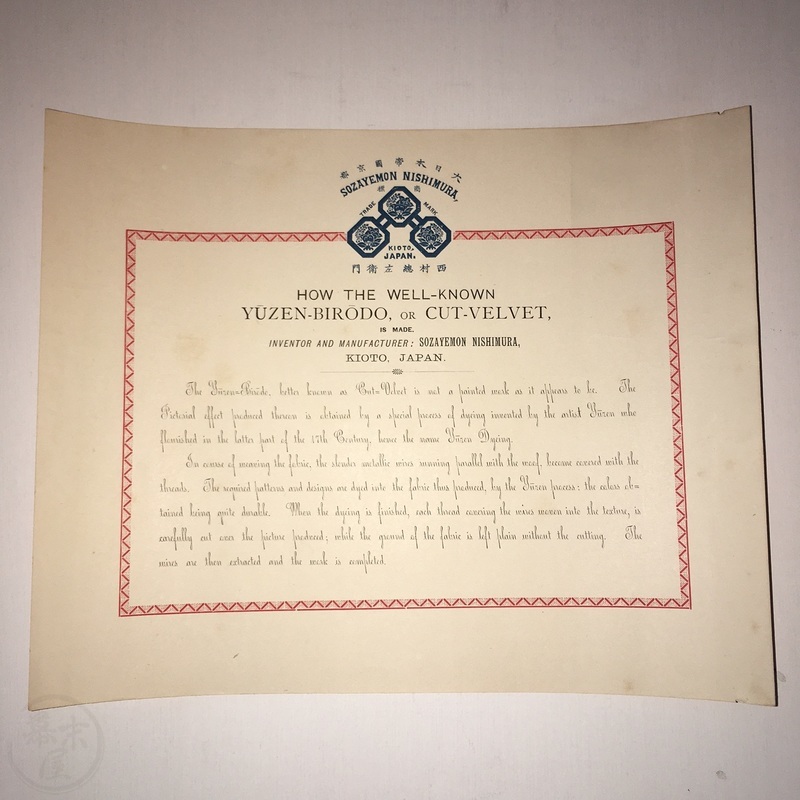 大日本帝國京都
SOZAYEMON NISHIMURA,
商標
TRADE MARK
KIOTO,
JAPAN.
西村總左衛門
HOW THE WELL-KNOWN
YŪZEN-BIRŌDO, OR CUT-VELVET,
IS MADE.
INVENTOR AND MANUFACTURER: SOZAYEMON NISHIMURA,
KIOTO, JAPAN.
The Yūzen=Birōdo, better known as Cut=Velvet is not a painted work as it appears to be. The
Pictorial effect produced thereon is obtained by a special process of dyeing invented by the artist Yūzen who
flourished in the latter part of the 17th Century, hence the name Yūzen Dyeing.
In course of weaving the fabric, the slender metallic wires running parallel with the woof, become covered with the
threads. The required patterns and designs are dyed into the fabric thus produced, by the Yūzen process; the colors ob=
tained being quite durable. When the dyeing is finished, each thread covering the wires woven into the texture, is
carefully cut over the picture produced; while the ground of the fabric is left plain without the cutting. The
wires are then extracted and the work is completed.
幕末屋